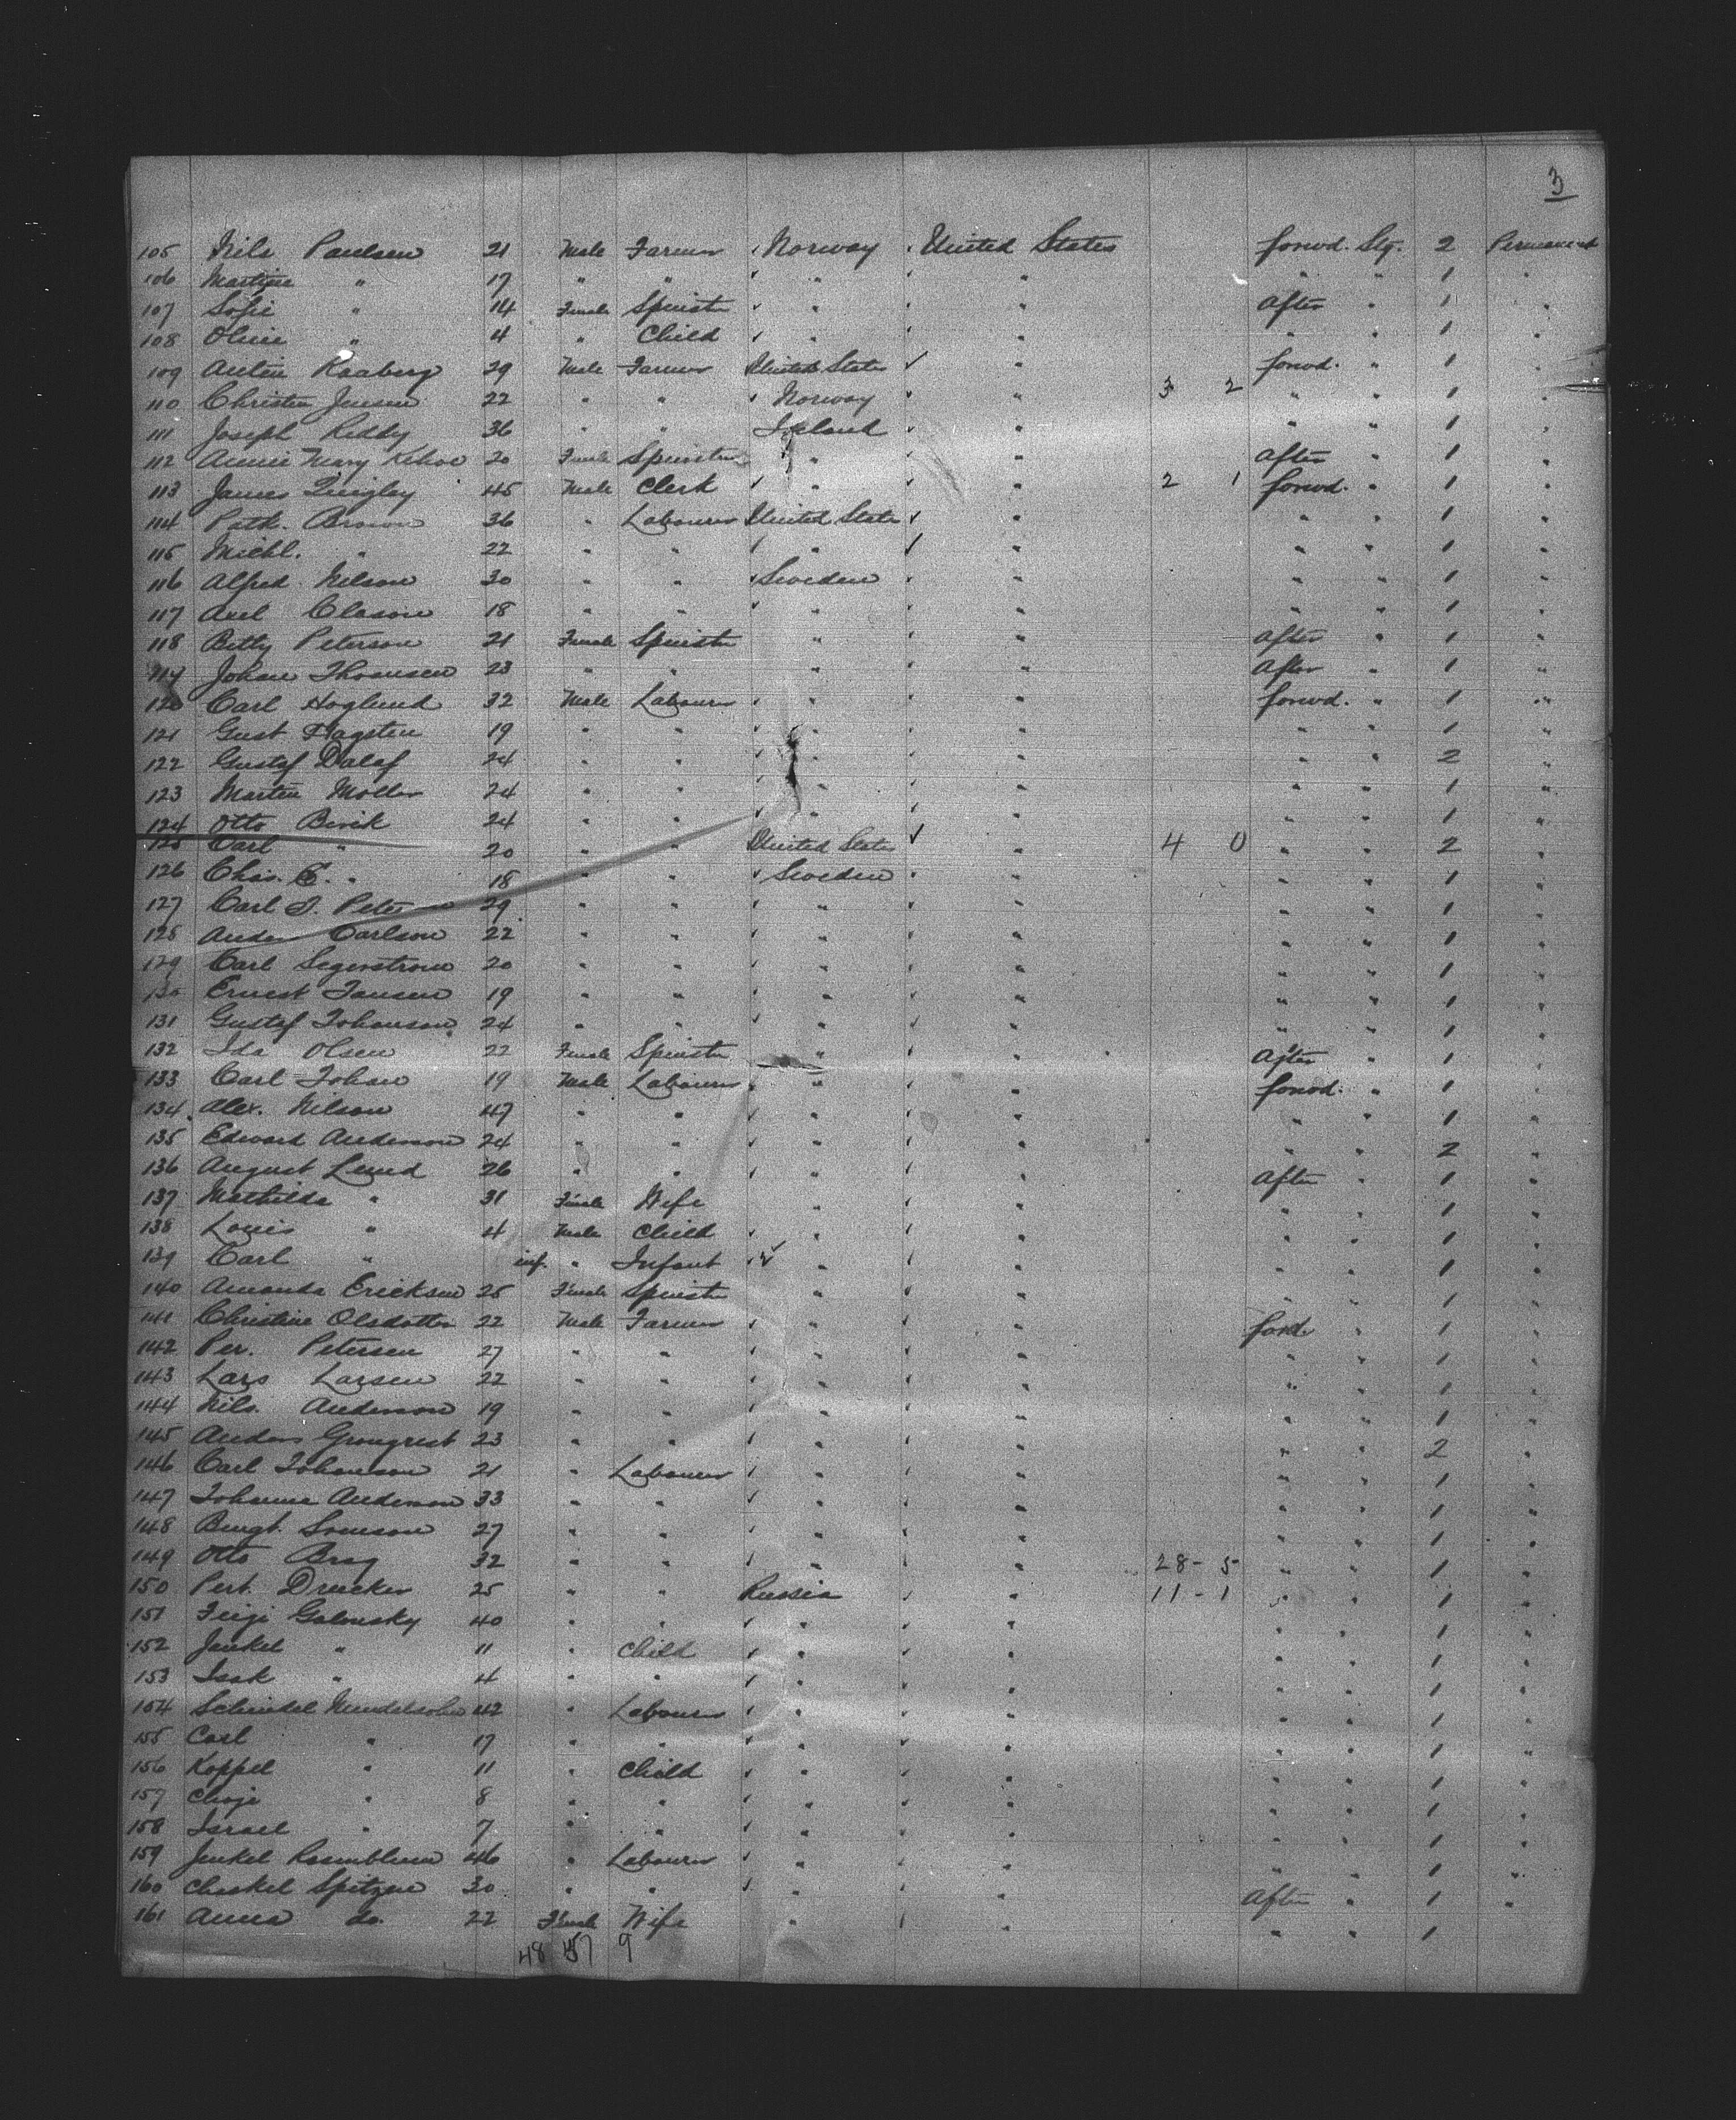 3
105 Nils Paulsen 21 Male Farmer Norway United States forwd. Stg. 2 Permanent
106 Martine " 17 " " " " " " 1 "
107 Sofie " 14 Female Spinster " " After " 1 "
108 Oline " 4 " Child " " " " 1 "
109 Anton Raaberg 29 Male Farmer United States " forwd. " 1 "
110 Christen Jensen 22 " " Norway " 3 2 " " 1 "
111 Joseph Reddy 36 " " Ireland " " " 1 "
112 Annie Mary Kehoe 20 Female Spinster " " After " 1 "
113 James Quigley 45 Male Clerk " " 2 1 forwd. " 1 "
114 Patk. Brown 36 " Labourer United States " " " 1 "
115 Michl. " 22 " " " " " " 1 "
116 Alfred Nilson 30 " " Sweden " " " 1 "
117 Axel Clason 18 " " " " " " 1 "
118 Betty Peterson 21 Female Spinster " " After " 1 "
119 Johan Thomsen 23 " " " " After " 1 "
120 Carl Hoglund 32 Male Labourer " " forwd. " 1 "
121 Gust Hagsten 19 " " " " " " 1 "
122 Gustaf Dalaf 24 " " " " " " 2 "
123 Martin Moller 24 " " " " " " 1 "
124 Otto Bevik 24 " " " " " " 1 "
125 Carl " 20 " " United States " 4 0 " " 2 "
126 Chas. E. " 18 " " Sweden " " " 1 "
127 Carl J. Peterson 29 " " " " " " 1 "
128 Ander Carlson 22 " " " " " " 1 "
129 Carl Segerstrom 20 " " " " " " 1 "
130 Ernest Jansen 19 " " " " " " 1 "
131 Gustaf Johanson 24 " " " " " " 1 "
132 Ida Olsen 22 Female Spinster " " After " 1 "
133 Carl Johan 19 Male Labourer " " forwd. " 1 "
134 Alex. Nilson 47 " " " " " " 1 "
135 Edward Anderson 24 " " " " " " 2 "
136 August Lund 26 " " " " After " 1 "
137 Mathilda " 31 Female Wife " " " " 1 "
138 Louis " 4 Male Child " " " " 1 "
139 Carl " inf. " Infant " " " " 1 "
140 Amanda Erickson 25 Female Spinster " " " " 1 "
141 Christine Olsdotter 22 Male Farmer " " ford. " 1 "
142 Per. Petersen 27 " " " " " " 1 "
143 Lars Larsen 22 " " " " " " 1 "
144 Nils. Anderson 19 " " " " " " 1 "
145 Anders Grongvist 23 " " " " " " 2 "
146 Carl Johanson 21 " Labourer " " " " 1 "
147 Johanna Anderson 33 " " " " " " 1 "
148 Bengt. Sonnson 27 " " " " " " 1 "
149 Otto Brag 32 " " " " 28 - 5 " " 1 "
150 Pert. Drucker 25 " " Russia " 11 - 1 " " 1 "
151 Feige Galonsky 40 " " " " " " 1 "
152 Jankel " 11 " Child " " " " 1 "
153 Isak " 4 " " " " " " 1 "
154 Scheindel Mendelsohn 42 " Labourer " " " " 1 "
155 Carl " 17 " " " " " " 1 "
156 Koppel " 11 " Child " " " " 1 "
157 Choje " 8 " " " " " " 1 "
158 Israel " 7 " " " " " " 1 "
159 Jenkel Rosenblum 46 " Labourer " " " " 1 "
160 Cheskel Spetzen 30 " " " " After " 1 "
161 Anna do. 22 Female Wife " " " " 1
48 57 9